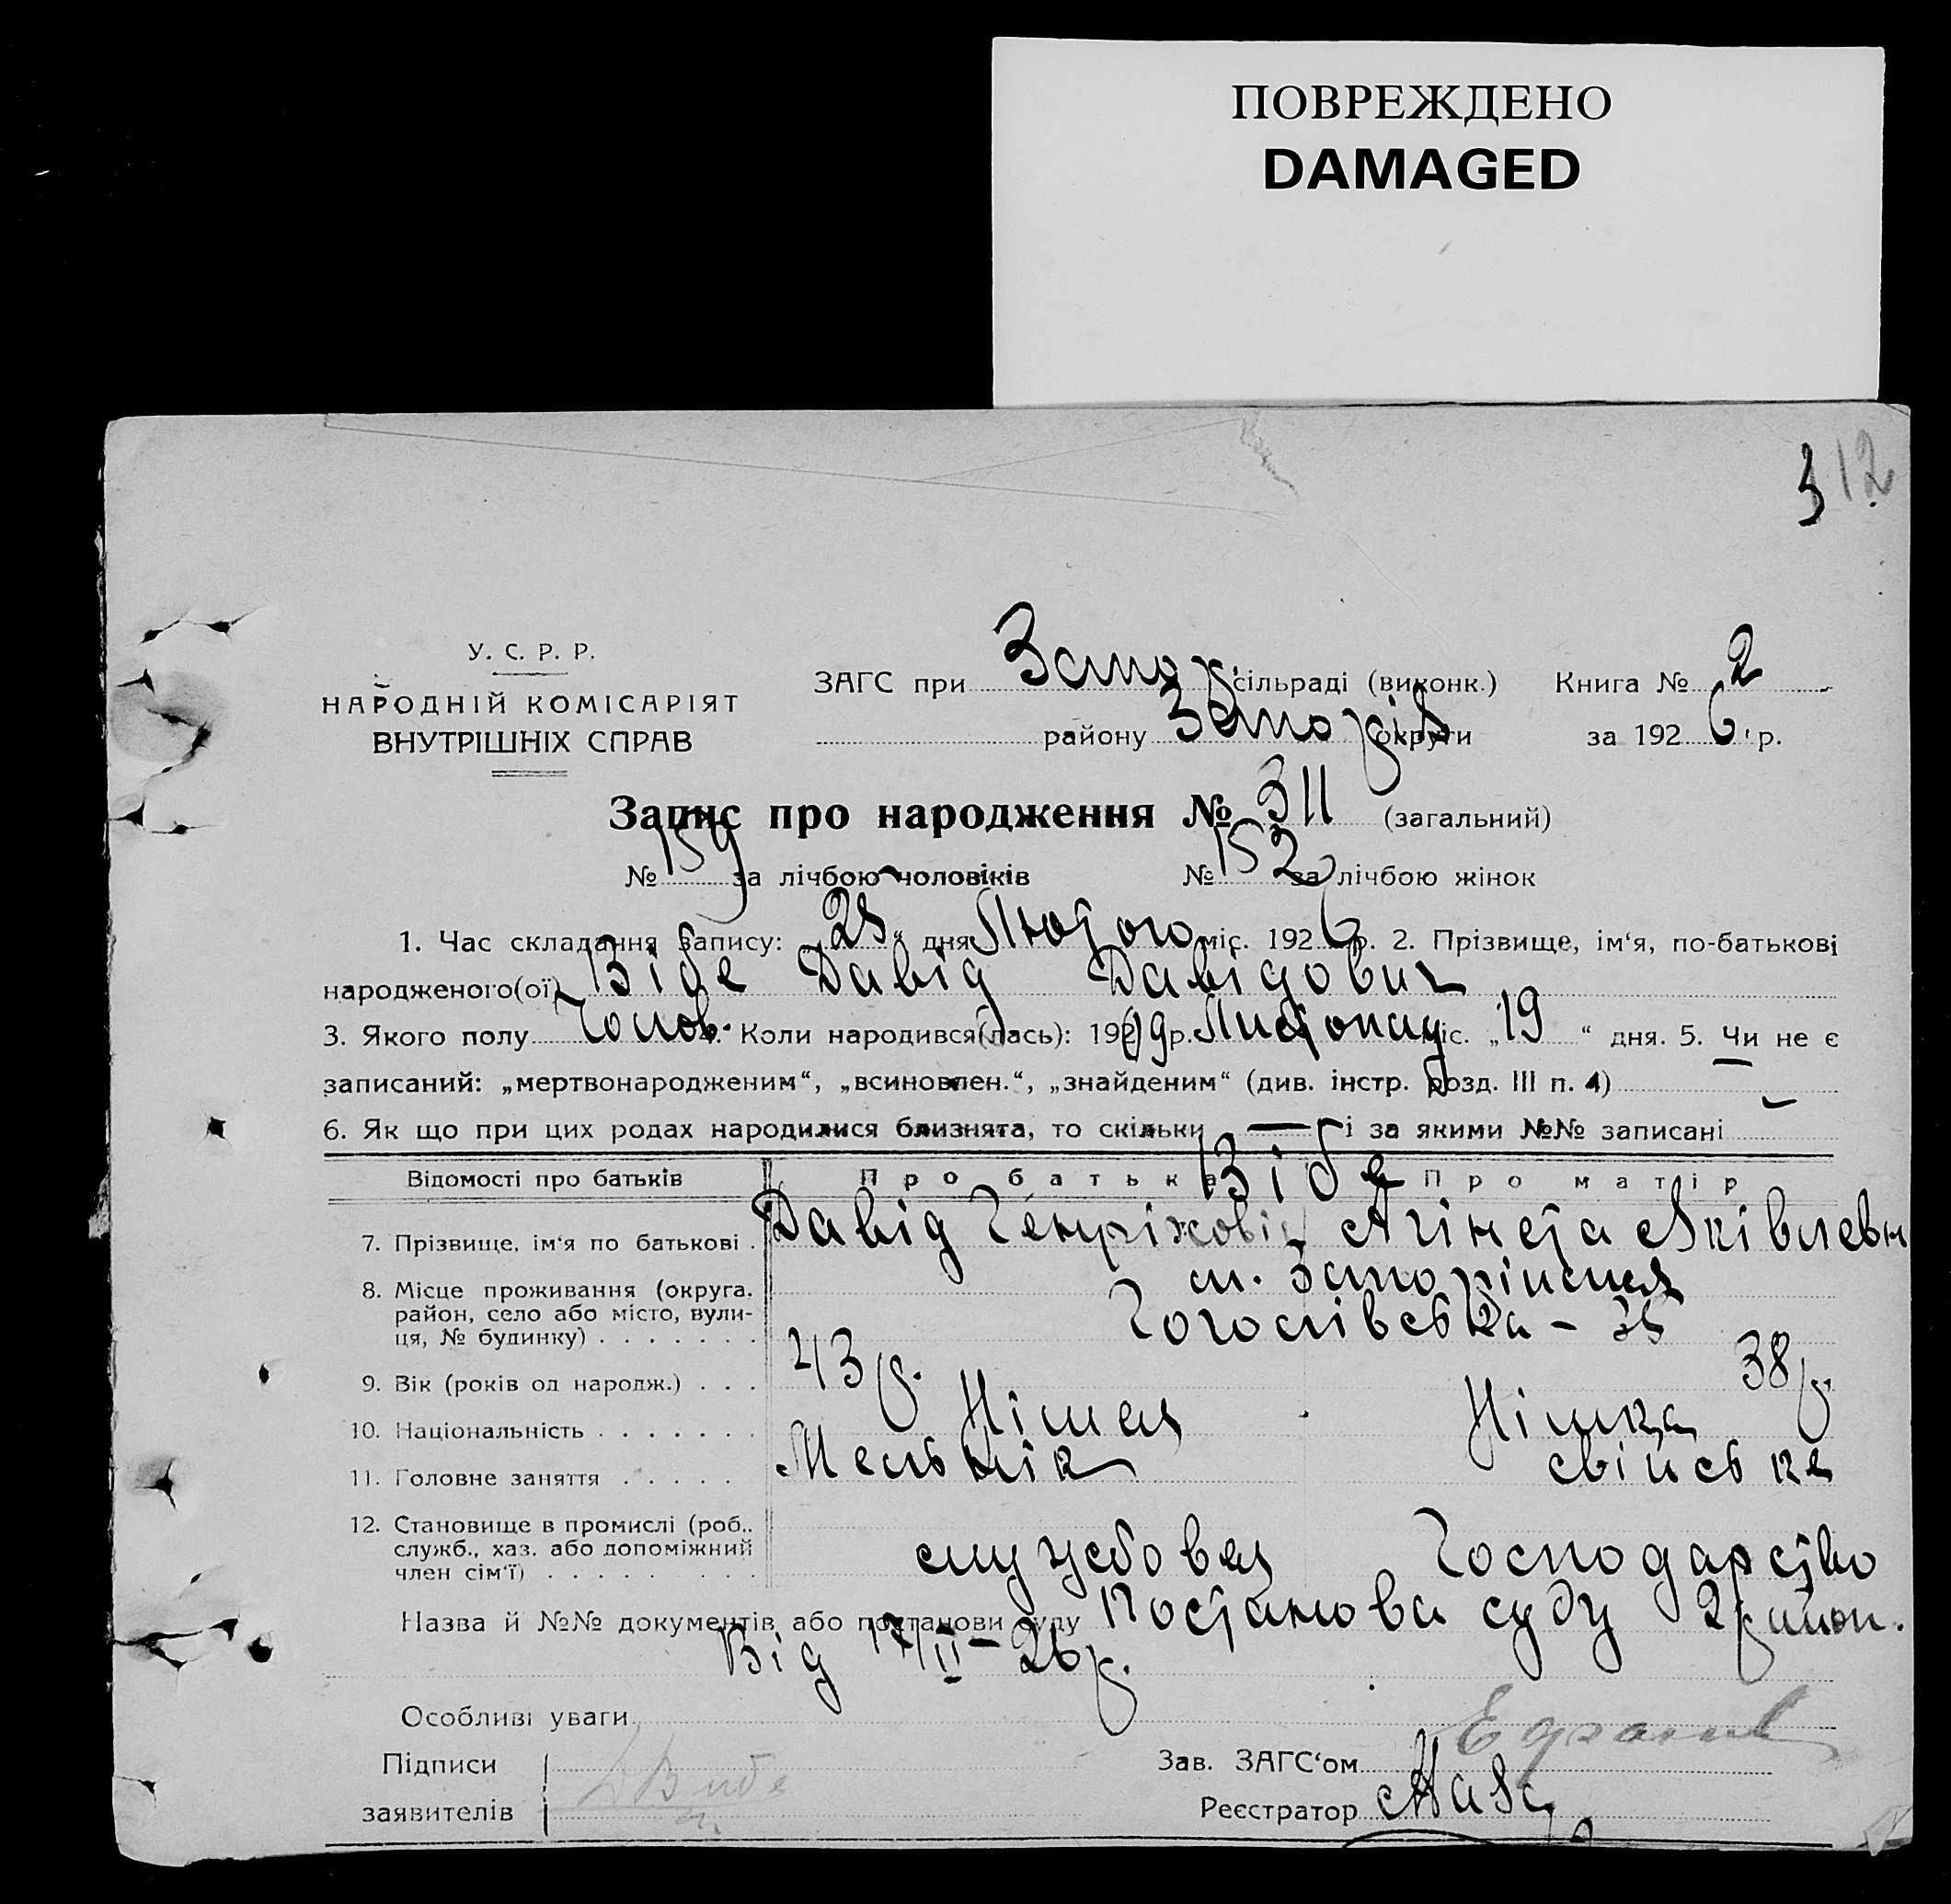 ПОВРЕЖДЕНО
DAMAGED
3 12
У. С. Р. Р.
НАРОДНІЙ КОМІСАРІЯТ
ВНУТРІШНІХ СПРАВ
ЗАГС при Запор. сільраді (виконк.) Книга № 2
району Запоріз округи за 1926 р.
Запис про народження № 311 (загальний)
№ 159 за лічбою чоловіків № 152 за лічбою жінок
1. Час складання запису: „25“ дня Лютого міс. 1926 р. 2. Прізвище, ім‘я, по-батькові
народженого(ої) Вібе Давід Давідович
3. Якого полу Чолов. 4. Коли народився(лась): 1919 р. Листопад міс. „19“ дня. 5. Чи не є
записаний: „мертвонародженим“, „всиновлен.“, „знайденим“ (див. інстр. розд. III п. 4) —
6. Як що при цих родах народилися близнята, то скільки — і за якими №№ записані
Відомості про батьків Про батька Про матір
Вібе
7. Прізвище, ім‘я по батькові . Давід Генріхович Агінета Яківлевн
8. Місце проживання (округа, район, село або місто, вули-ця, № будинку) . . . . . . . м. Запоріжжя
Гоголівська –
9. Вік (років од народж.) . . . 43 р. 38 р.
10. Національність . . . . . . . Німець Німка
11. Головне заняття . . . . . Мельнік свійське
12. Становище в промислі (роб., служб., хаз. або допоміжний член сім‘ї) . . . . . . . . службовец Господарство
Назва й №№ документів або постанови суду Постанова суду 2 район.
Від 17/II – 26 р.
Особливі уваги
Підписи
заявителів Д Вибе
Зав. ЗАГС‘ом
Реєстратор